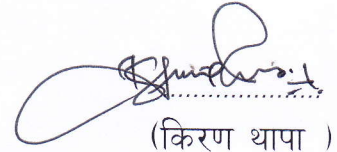 (किरण थापा )